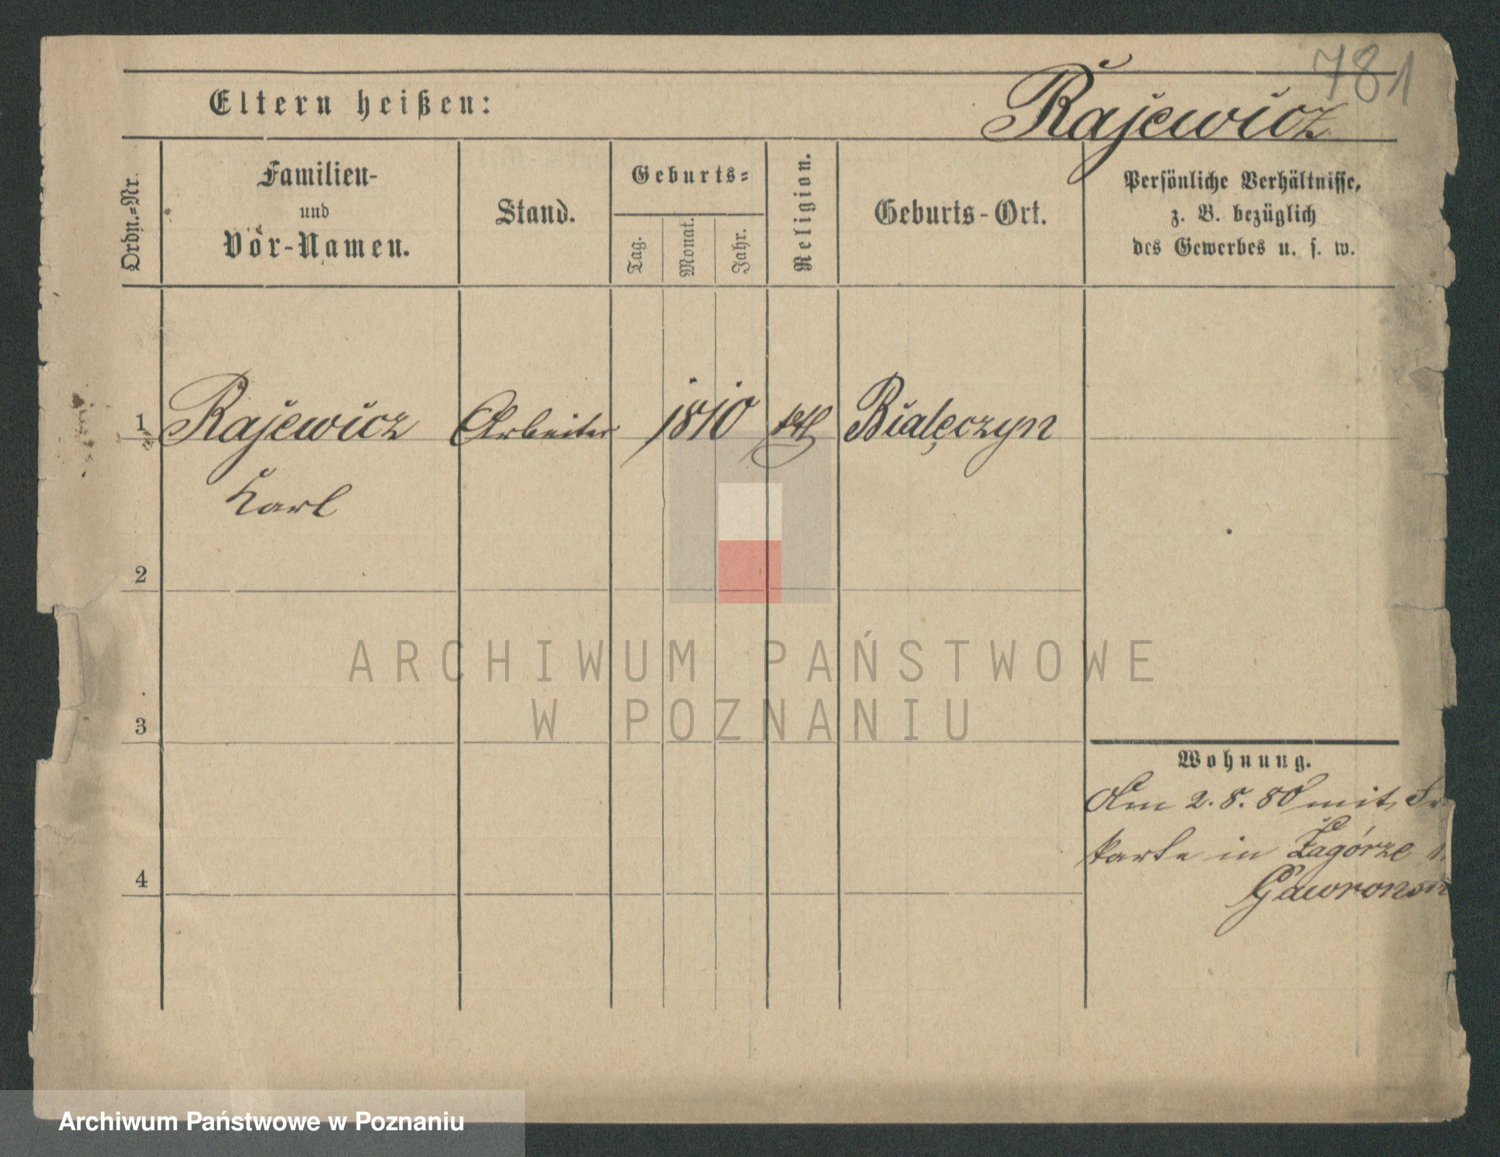 781
Eltern heißen:
Rajewicz
Ordn.-Nr.
Familien-
und
Vor-Namen.
Stand.
Geburts-
Tag.
Monat.
Jahr.
Religion.
Geburts-Ort.
Persönliche Verhältnisse,
z. B. bezüglich
des Gewerbes u. s. w.
1 Rajewicz Arbeiter 1810 kth Białęczyn
Karl
2
ARCHIWUM PAŃSTWOWE
W POZNANIU
3
Wohnung.
Am 2. 8. 80 mit
karte in Zagórze
4
Archiwum Państwowe w Poznaniu